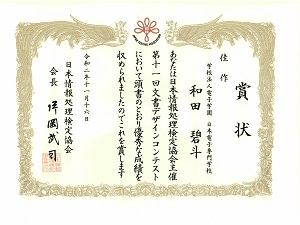 賞状
佳作
学校法人電子学園 日本電子専門学校
和田 碧斗
あなたは日本情報処理検定協会主催
第十一回文書デザインコンテスト
において頭書のとおり優秀な成績を
収められましたのでこれを賞します
令和二年十一月十六日
日本情報処理検定協会
会長
武司